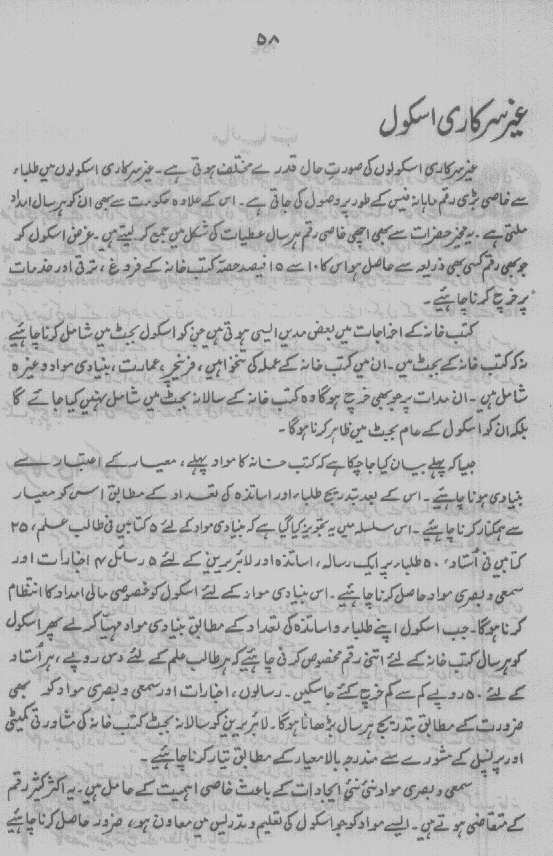 ۵۸
غیر سرکاری اسکول
غیر سرکاری اسکولوں کی صورتِ حال قدرے مختلف ہوتی ہے۔ غیر سرکاری اسکولوں میں طلباء
سے خاصی بڑی رقم ماہانہ فیس کے طور پر وصول کی جاتی ہے۔ اس کے علاوہ حکومت سے بھی ان کو ہر سال امداد
ملتی ہے۔ یہ مخیر حضرات سے بھی اچھی خاصی رقم ہر سال عطیات کی شکل میں جمع کر لیتے ہیں۔ غرض اسکول کو
جو بھی رقم کسی بھی ذریعہ سے حاصل ہو اس کا ۱۰ سے ۱۵ فیصد حصّہ کتب خانہ کے فروغ، ترقی اور خدمات
پر خرچ کرنا چاہیئے۔
کتب خانہ کے اخراجات میں بعض مدیں ایسی ہوتی ہیں جن کو اسکول بجٹ میں شامل کرنا چاہئیے
نہ کہ کتب خانہ کے بجٹ میں۔ ان میں کتب خانہ کے عملہ کی تنخواہیں، فرنیچر، عمارت، بنیادی مواد وغیرہ
شامل ہیں۔ ان مدات پر جو بھی خرچ ہوگا وہ کتب خانہ کے سالانہ بجٹ میں شامل نہیں کیا جائے گا
بلکہ ان کو اسکول کے عام بجٹ میں ظاہر کرنا ہوگا۔
جیسا کہ پہلے بیان کیا جا چکا ہے کہ کتب خانہ کا مواد پہلے، معیار کے اعتبار سے
بنیادی ہونا چاہئیے۔ اس کے بعد بتدریج طلباء اور اساتذہ کی تعداد کے مطابق اس کو معیار
سے ہمکنار کرنا چاہئیے۔ اس سلسلہ میں یہ تجویز کیا گیا ہے کہ بنیادی مواد کے لئے ۵ کتابیں فی طالب علم، ۲۵
کتابیں فی اُستاد، ۵۰ طلباء پر ایک رسالہ، اساتذہ اور لائبریرین کے لئے ۵ رسائل ۴ اخبارات اور
سمعی و بصری مواد حاصل کرنا چاہئیے۔ اس بنیادی مواد کے لئے اسکول کو خصوصی مالی امداد کا انتظام
کرنا ہوگا۔ جب اسکول اپنے طلباء و اساتذہ کی تعداد کے مطابق بنیادی مواد مہیا کر لے پھر اسکول
کو ہر سال کتب خانہ کے لئے اتنی رقم مخصوص کرنی چاہئیے کہ ہر طالب علم کے لئے دس روپے، ہر اُستاد
کے لئے ۵۰ روپے کم سے کم خرچ کئے جا سکیں۔ رسالوں، اخبارات اور سمعی و بصری مواد کو بھی
ضرورت کے مطابق بتدریج ہر سال بڑھانا ہوگا۔ لائبریرین کو سالانہ بجٹ کتب خانہ کی مشاورتی کمیٹی
اور پرنسپل کے مشورے سے مندرجہ بالا معیار کے مطابق تیار کرنا چاہئیے۔
سمعی و بصری مواد نئی نئی ایجادات کے باعث خاصی اہمیت کے حامل ہیں۔ یہ اکثر کثیر رقم
کے متقاضی ہوتے ہیں۔ ایسے مواد کو جو اسکول کی تعلیم و تدریس میں معاون ہو، ضرور حاصل کرنا چاہئیے